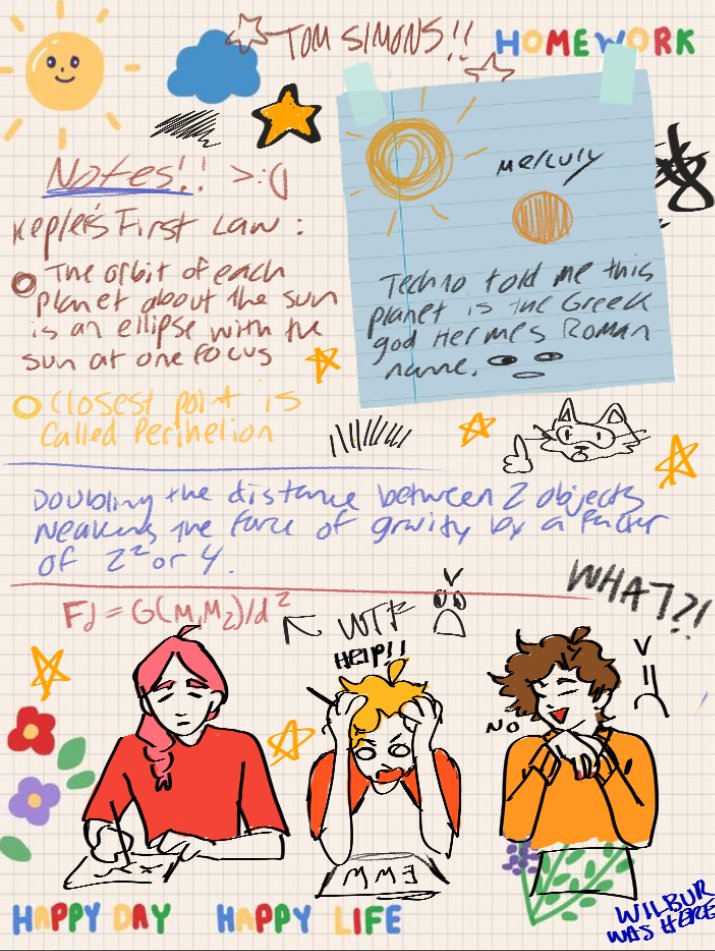 TOM SIMONS!!
HOMEWORK
Notes!! >:(
Kepler's First Law:
The orbit of each
planet about the sun
is an ellipse with the
sun at one focus
Closest point is
called Perihelion
mercury
Techno told me this
planet is the Greek
god Hermes Roman
name.
Doubling the distance between 2 objects
weakens the force of gravity by a factor
of 2² or 4.
WHAT?!
FJ = G(M₁M₂)/d²
WTF
HELP!!
NO
HAPPY DAY HAPPY LIFE
WILBUR
WAS HERE